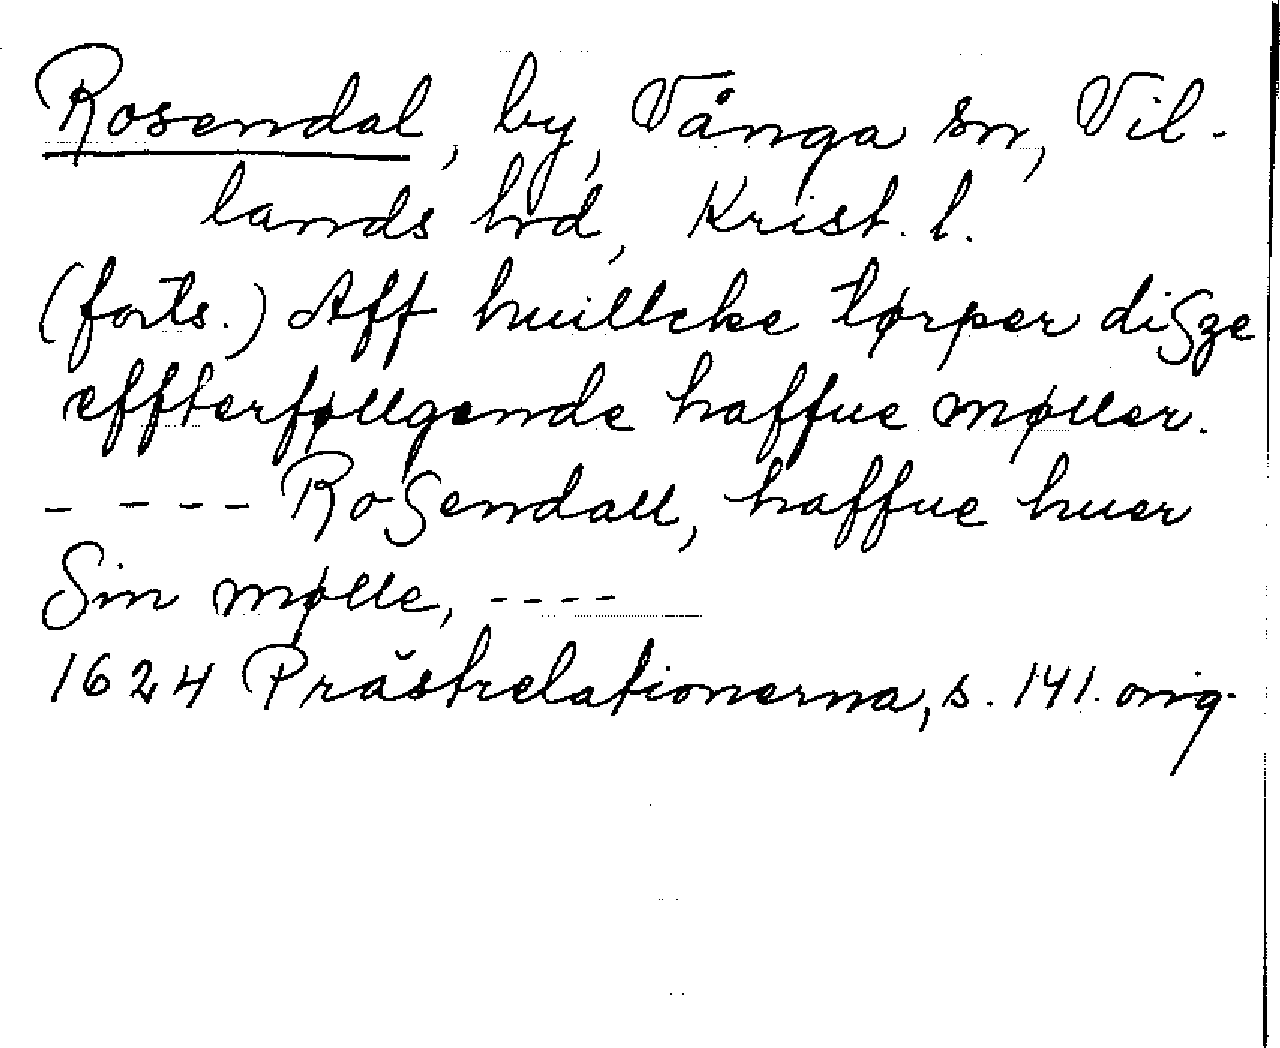 Rosendal, by, Vånga sn, Vil-
lands hd, Krist. l.
(forts.) Aff huillcke tørper diSze
effterføllgende haffue møller.
- - - - RoSendall, haffue huer
Sin mølle, - - - -
1624 Prästrelationerna, s. 141. orig.